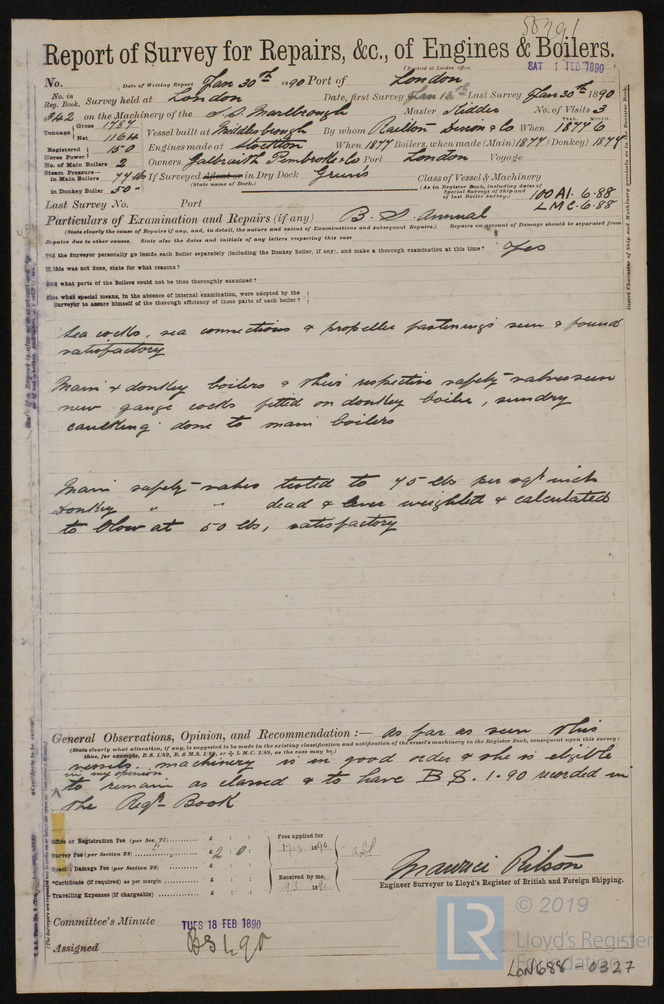 50391
Report of Survey for Repairs, &c., of Engines & Boilers.
(Received at London Office,
SAT 1 FEB 1890
No. Date of Writing Report Jan 30th 1890 Port of London
No. in Reg. Book. Survey held at London Date, first Survey Jan 13th Last Survey Jan 30th 1890
342 on the Machinery of the S.S. Marlbrough Master Kidder No. of Visits 3
Tonnage Gross 1784 Net 1164 Vessel built at Middlesbrough By whom Railton Dixon & Co When 1877 6
YEAR. MONTH.
Registered Horse Power 150 Engines made at Stockton When 1877 Boilers, when made (Main) 1877 (Donkey) 1877
No. of Main Boilers 2 Owners Galbraith Pembroke & Co Port London Voyage
Steam Pressure— in Main Boilers 77 lb If Surveyed Afloat or in Dry Dock Greens
(State name of Dock.)
in Donkey Boiler 50 "
Class of Vessel & Machinery
(As in Register Book, including dates of Special Surveys of Ship and of last Boiler Survey.)
100A1. 6.88
LMC. 6.88
Last Survey No. Port
Particulars of Examination and Repairs (if any) B. S. Annual
(State clearly the cause of Repairs if any, and, in detail, the nature and extent of Examinations and subsequent Repairs.) Repairs on account of Damage should be separated from
Repairs due to other causes. State also the dates and initials of any letters respecting this case
Did the Surveyor personally go inside each Boiler separately (including the Donkey Boiler, if any), and make a thorough examination at this time? Yes
If this was not done, state for what reasons?
And what parts of the Boilers could not be thus thoroughly examined?
Also what special means, in the absence of internal examination, were adopted by the
Surveyor to assure himself of the thorough efficiency of those parts of each boiler?
Sea cocks, sea connections & propeller fastenings seen & found
satisfactory
Main & donkey boilers & their respective safety-valves seen
new gauge cocks fitted on donkey boiler, sundry
caulking done to main boilers
Main safety-valves tested to 75 lbs per sqr inch
Donkey " " dead & lever weighted & calculated
to blow at 50 lbs, satisfactory
General Observations, Opinion, and Recommendation :— As far as seen this
(State clearly what alteration, if any, is suggested to be made in the existing classification and notification of the vessel's machinery in the Register Book, consequent upon this survey:
thus, for example, B.S. 1/89, B. & M.S. 1/89, or L.M.C. 1/89, as the case may be)
vessels machinery is in good order & she is eligible
in my opinion
to remain as classed & to have B.S. 1.90 recorded in
the Regr Book
Office or Registration Fee (per Sec. 27) £ : :
Survey Fee (per Section 28) £ 2 : 0 :
Special Damage Fee (per Section 28) £ : :
*Certificate (if required) as per margin £ : :
Travelling Expenses (if chargeable) £ : :
Fees applied for
1890
Received by me,
Engineer Surveyor to Lloyd's Register of British and Foreign Shipping.
Committee's Minute TUES 18 FEB 1890
Assigned BS 1.90
LR
© 2019
Lloyd's Register
Foundation
LON688-0327